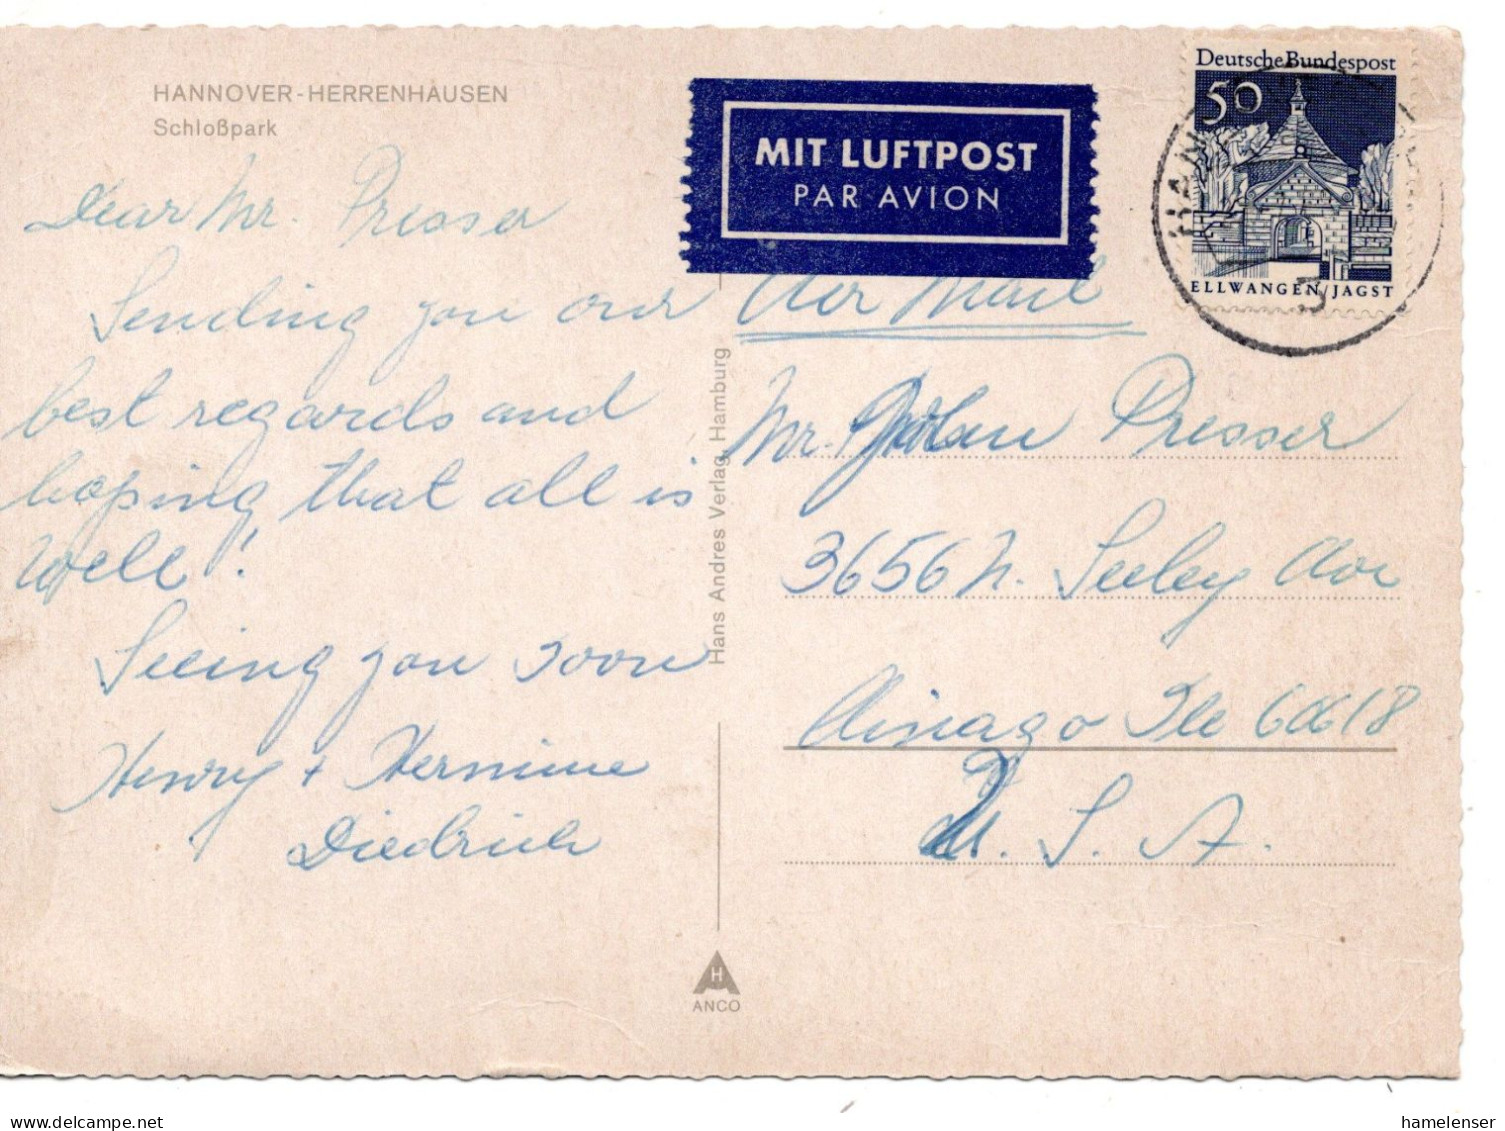 HANNOVER-HERRENHAUSEN
Schloßpark
Dear Mr. Presser
Sending you our
best regards and
hoping that all is
well!
Seeing you soon
Henry + Hermine
Diedrich
Hans Andres Verlag, Hamburg
ANCO
MIT LUFTPOST
PAR AVION
Air Mail
Deutsche Bundespost
50
ELLWANGEN/JAGST
Mr. Presser
3656 N. Seeley Ave
Chicago Ill 60618
U. S. A.
hamelenser
hamelenser.com